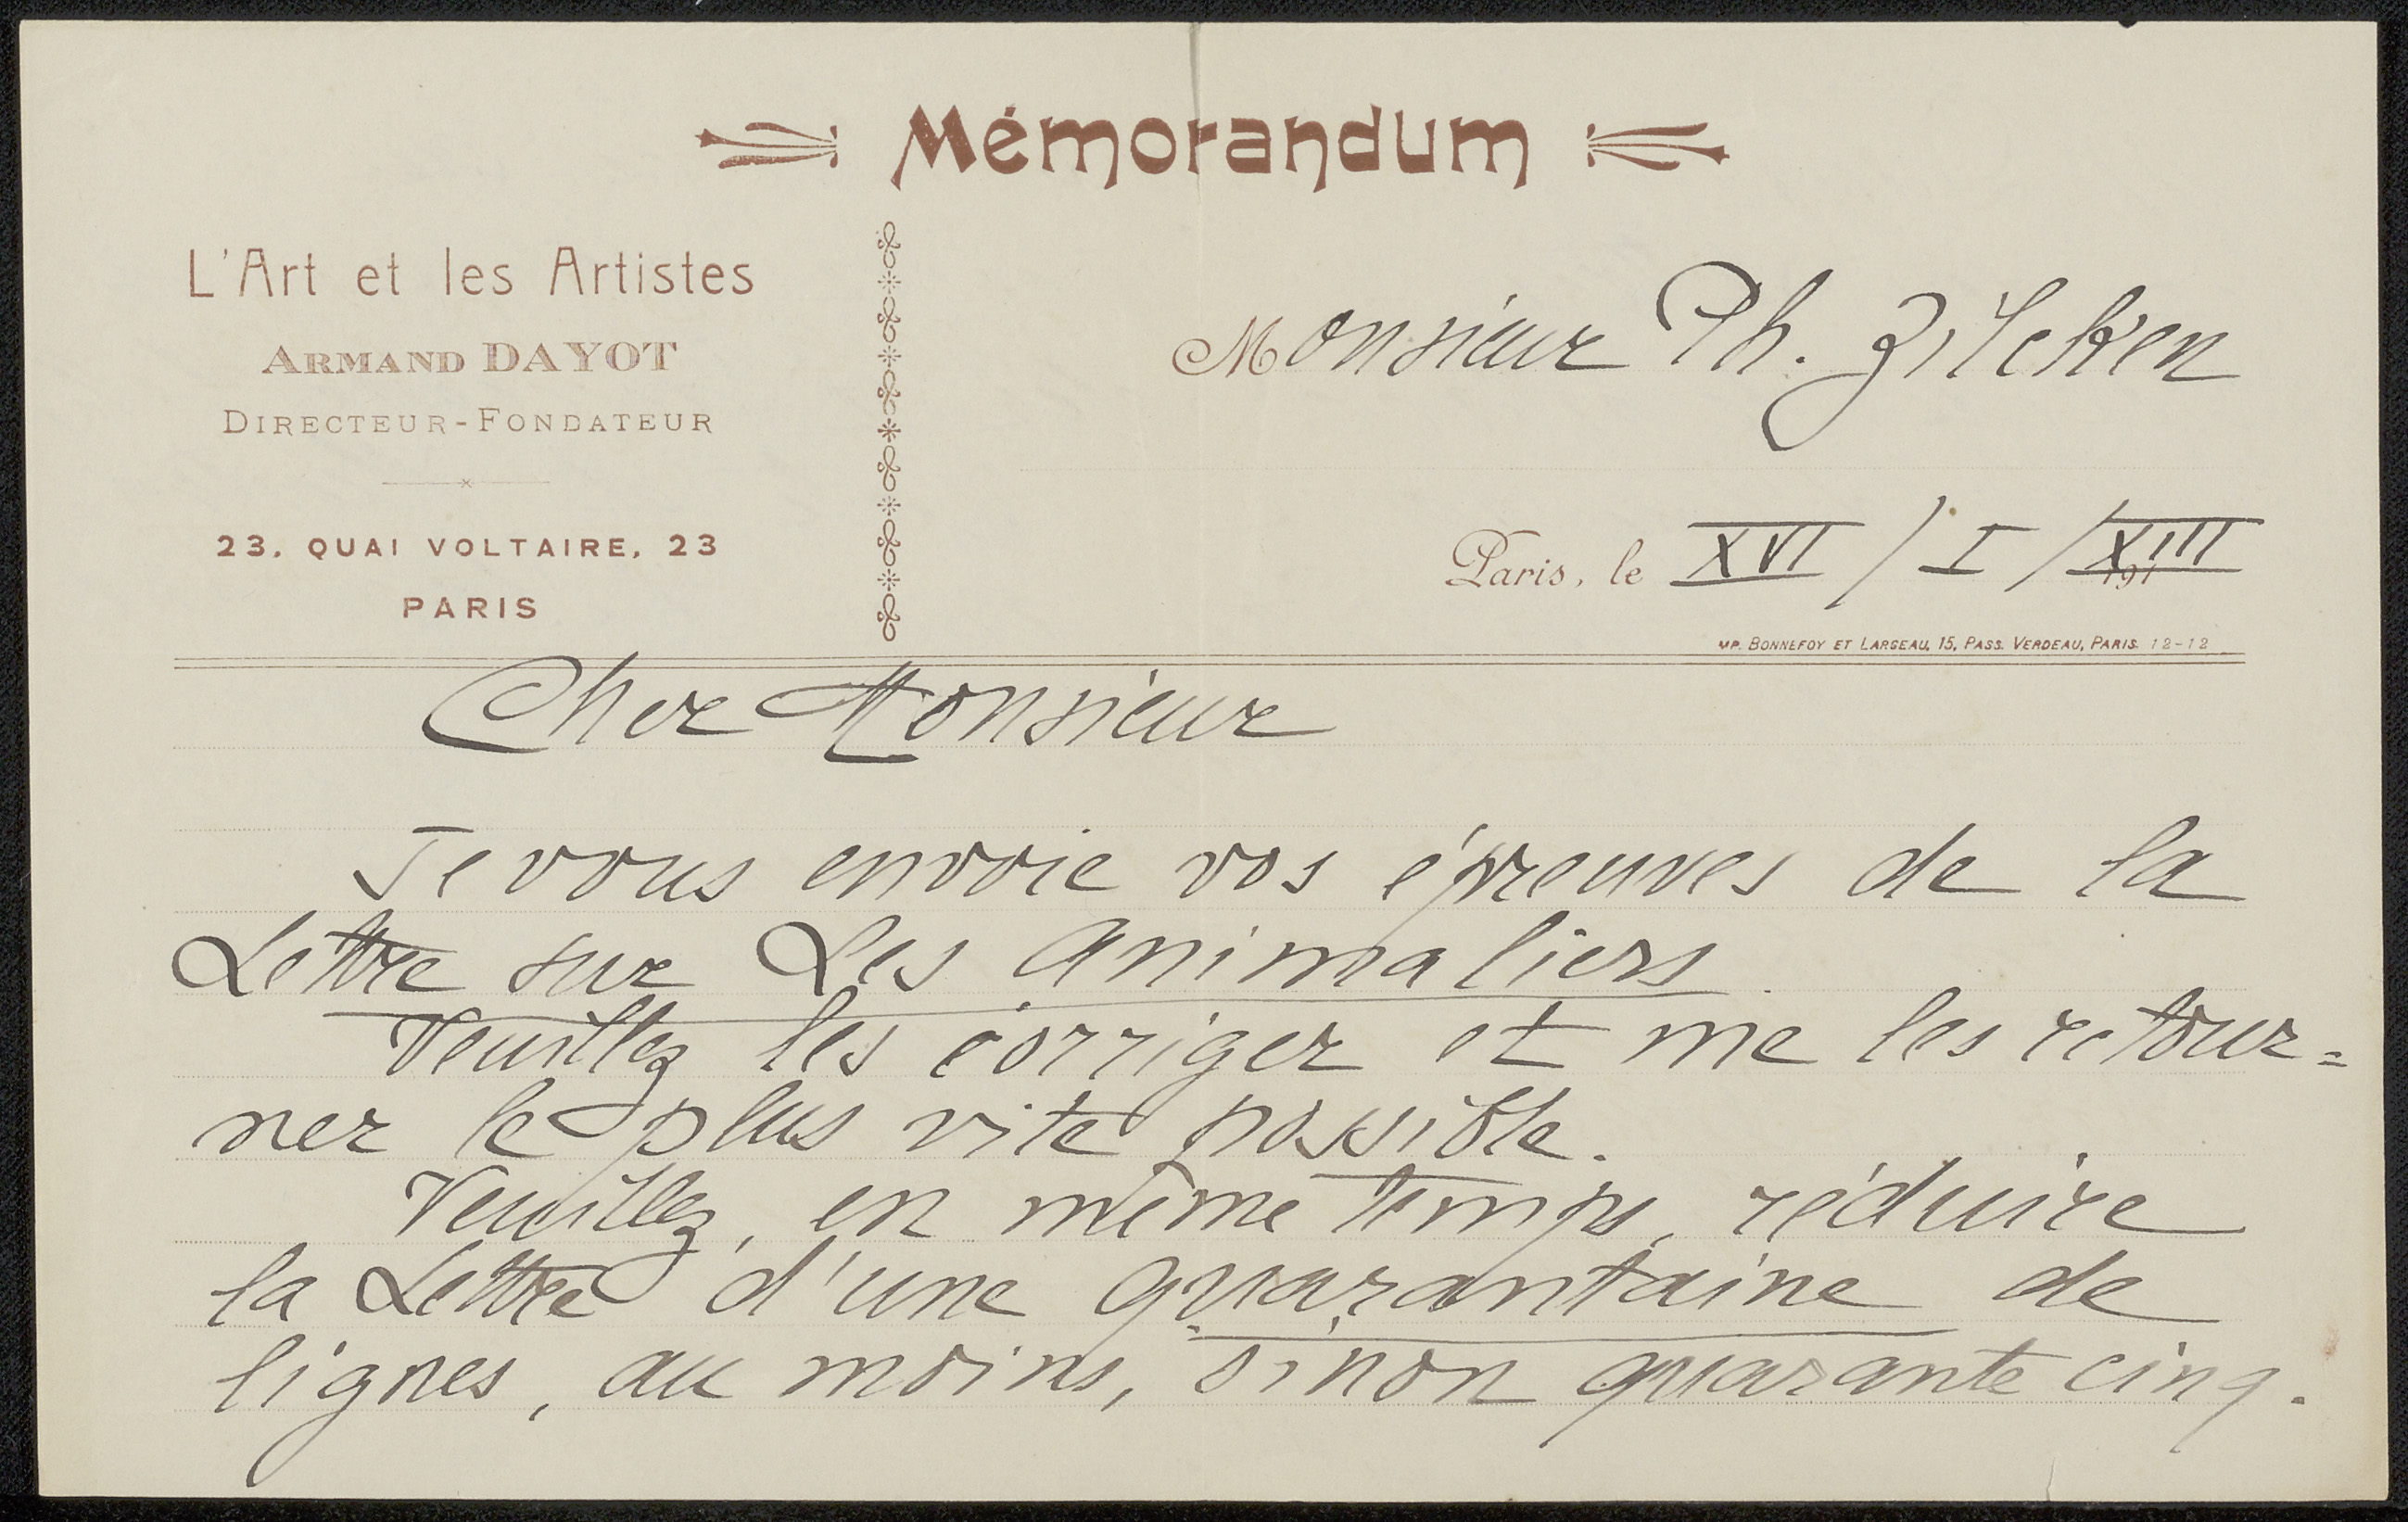 Mémorandum
L'Art et les Artistes
ARMAND DAYOT
DIRECTEUR-FONDATEUR
23, QUAI VOLTAIRE, 23
PARIS
Monsieur Ph. Zilcken
Paris, le XVI / I / XIII 191
IMP. BONNEFOY ET LARGEAU, 15, PASS. VERDEAU, PARIS 12-12
Cher Monsieur
Je vous envoie vos épreuves de la
Lettre sur Les Animaliers.
Veuillez les corriger et me les retour=
ner le plus vite possible.
Veuillez, en même temps, réduire
la Lettre d'une quarantaine de
lignes, au moins, sinon quarante cinq.